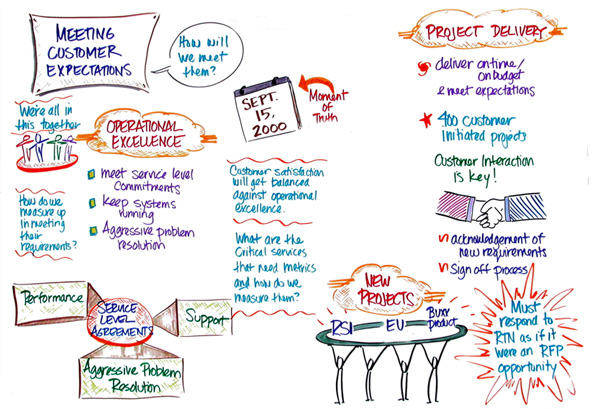 MEETING
CUSTOMER
EXPECTATIONS
How will
we meet
them?
We're all in
this together
OPERATIONAL
EXCELLENCE
meet service level
Commitments
Keep systems
running
Aggressive problem
resolution
How do we
measure up
in meeting
their
requirements?
Performance
SERVICE
LEVEL
AGREEMENTS
Support
Aggressive Problem
Resolution
SEPT.
15,
2000
Moment
of
Truth
Customer satisfaction
will get balanced
against operational
excellence.
What are the
Critical services
that need metrics
and how do we
measure them?
NEW
PROJECTS
RSI
EU
product
PROJECT DELIVERY
deliver on time/
on budget
& meet expectations
400 Customer
Initiated projects
Customer Interaction
is Key!
acknowledgement of
new requirements
Sign off process
Must
respond to
RTN as if it
were an RFP
opportunity